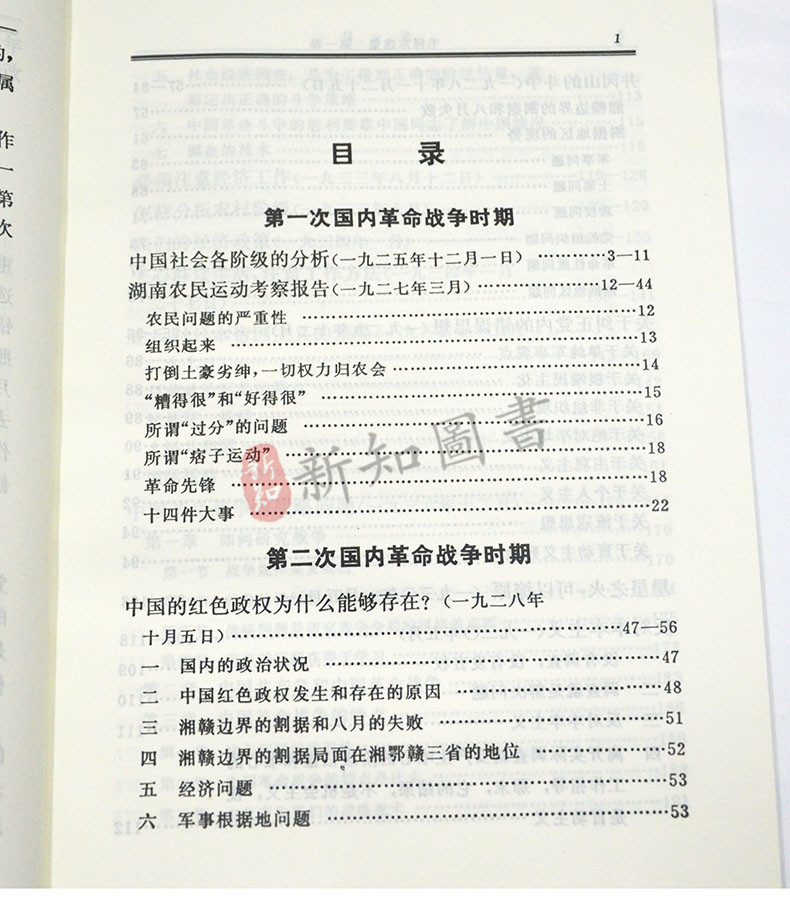 1
目 录
第一次国内革命战争时期
中国社会各阶级的分析(一九二五年十二月一日) ……………3—11
湖南农民运动考察报告(一九二七年三月) ……………12—44
农民问题的严重性 ……………12
组织起来 ……………13
打倒土豪劣绅,一切权力归农会 ……………14
“糟得很”和“好得很” ……………15
所谓“过分”的问题 ……………16
所谓“痞子运动” ……………18
革命先锋 ……………18
十四件大事 ……………22
新知
新知圖書
第二次国内革命战争时期
中国的红色政权为什么能够存在?(一九二八年
十月五日)……………47—56
一 国内的政治状况 ……………47
二 中国红色政权发生和存在的原因 ……………48
三 湘赣边界的割据和八月的失败 ……………51
四 湘赣边界的割据局面在湘鄂赣三省的地位 ……………52
五 经济问题 ……………53
六 军事根据地问题 ……………53